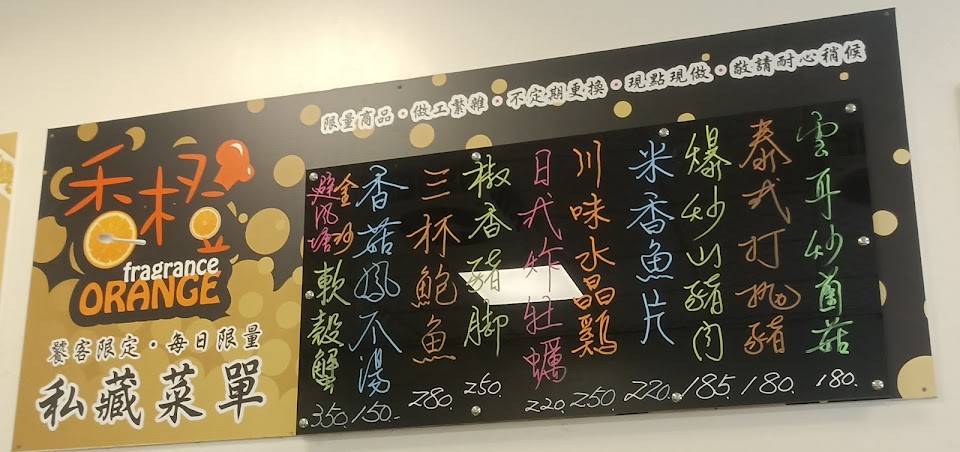 限量商品・做工繁雜・不定期更換・現點現做・敬請耐心稍候
香橙
fragrance
ORANGE
饕客限定・每日限量
私藏菜單
雲耳炒菌菇 180.
泰式打拋豬 180.
爆炒山豬肉 185
米香魚片 220.
川味水晶鷄 250.
日式炸牡蠣 220.
椒香豬脚 250.
三杯鮑魚 280.
香菇鳳爪湯 150-
金沙
避風塘
軟殼蟹 350.